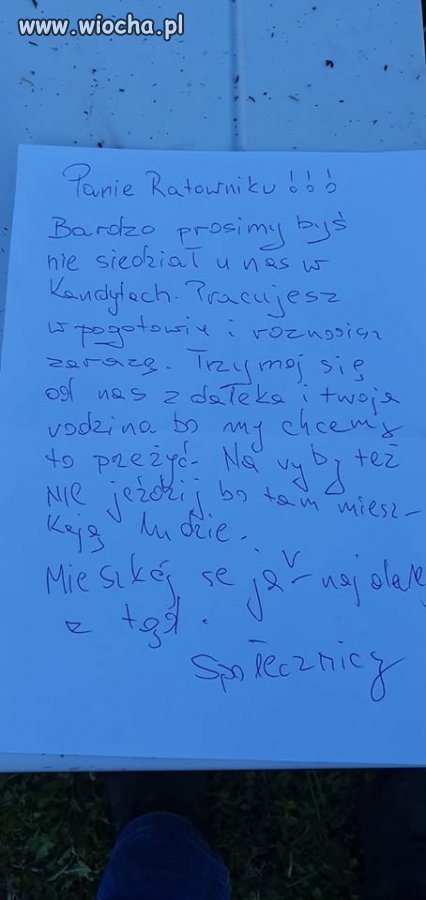 www.wiocha.pl
Panie Ratowniku!!!
Bardzo prosimy byś
nie siedział u nas w
Kandytach. Pracujesz
w pogotowiu i roznosisz
zarazę. Trzymaj się
od nas z daleka i twoja
rodzina bo my chcemy
to przeżyć. Na ryby też
NIE jeździj bo tam miesz-
kają ludzie.
Mieszkaj se jak najdalej
z tąd.
Społecznicy